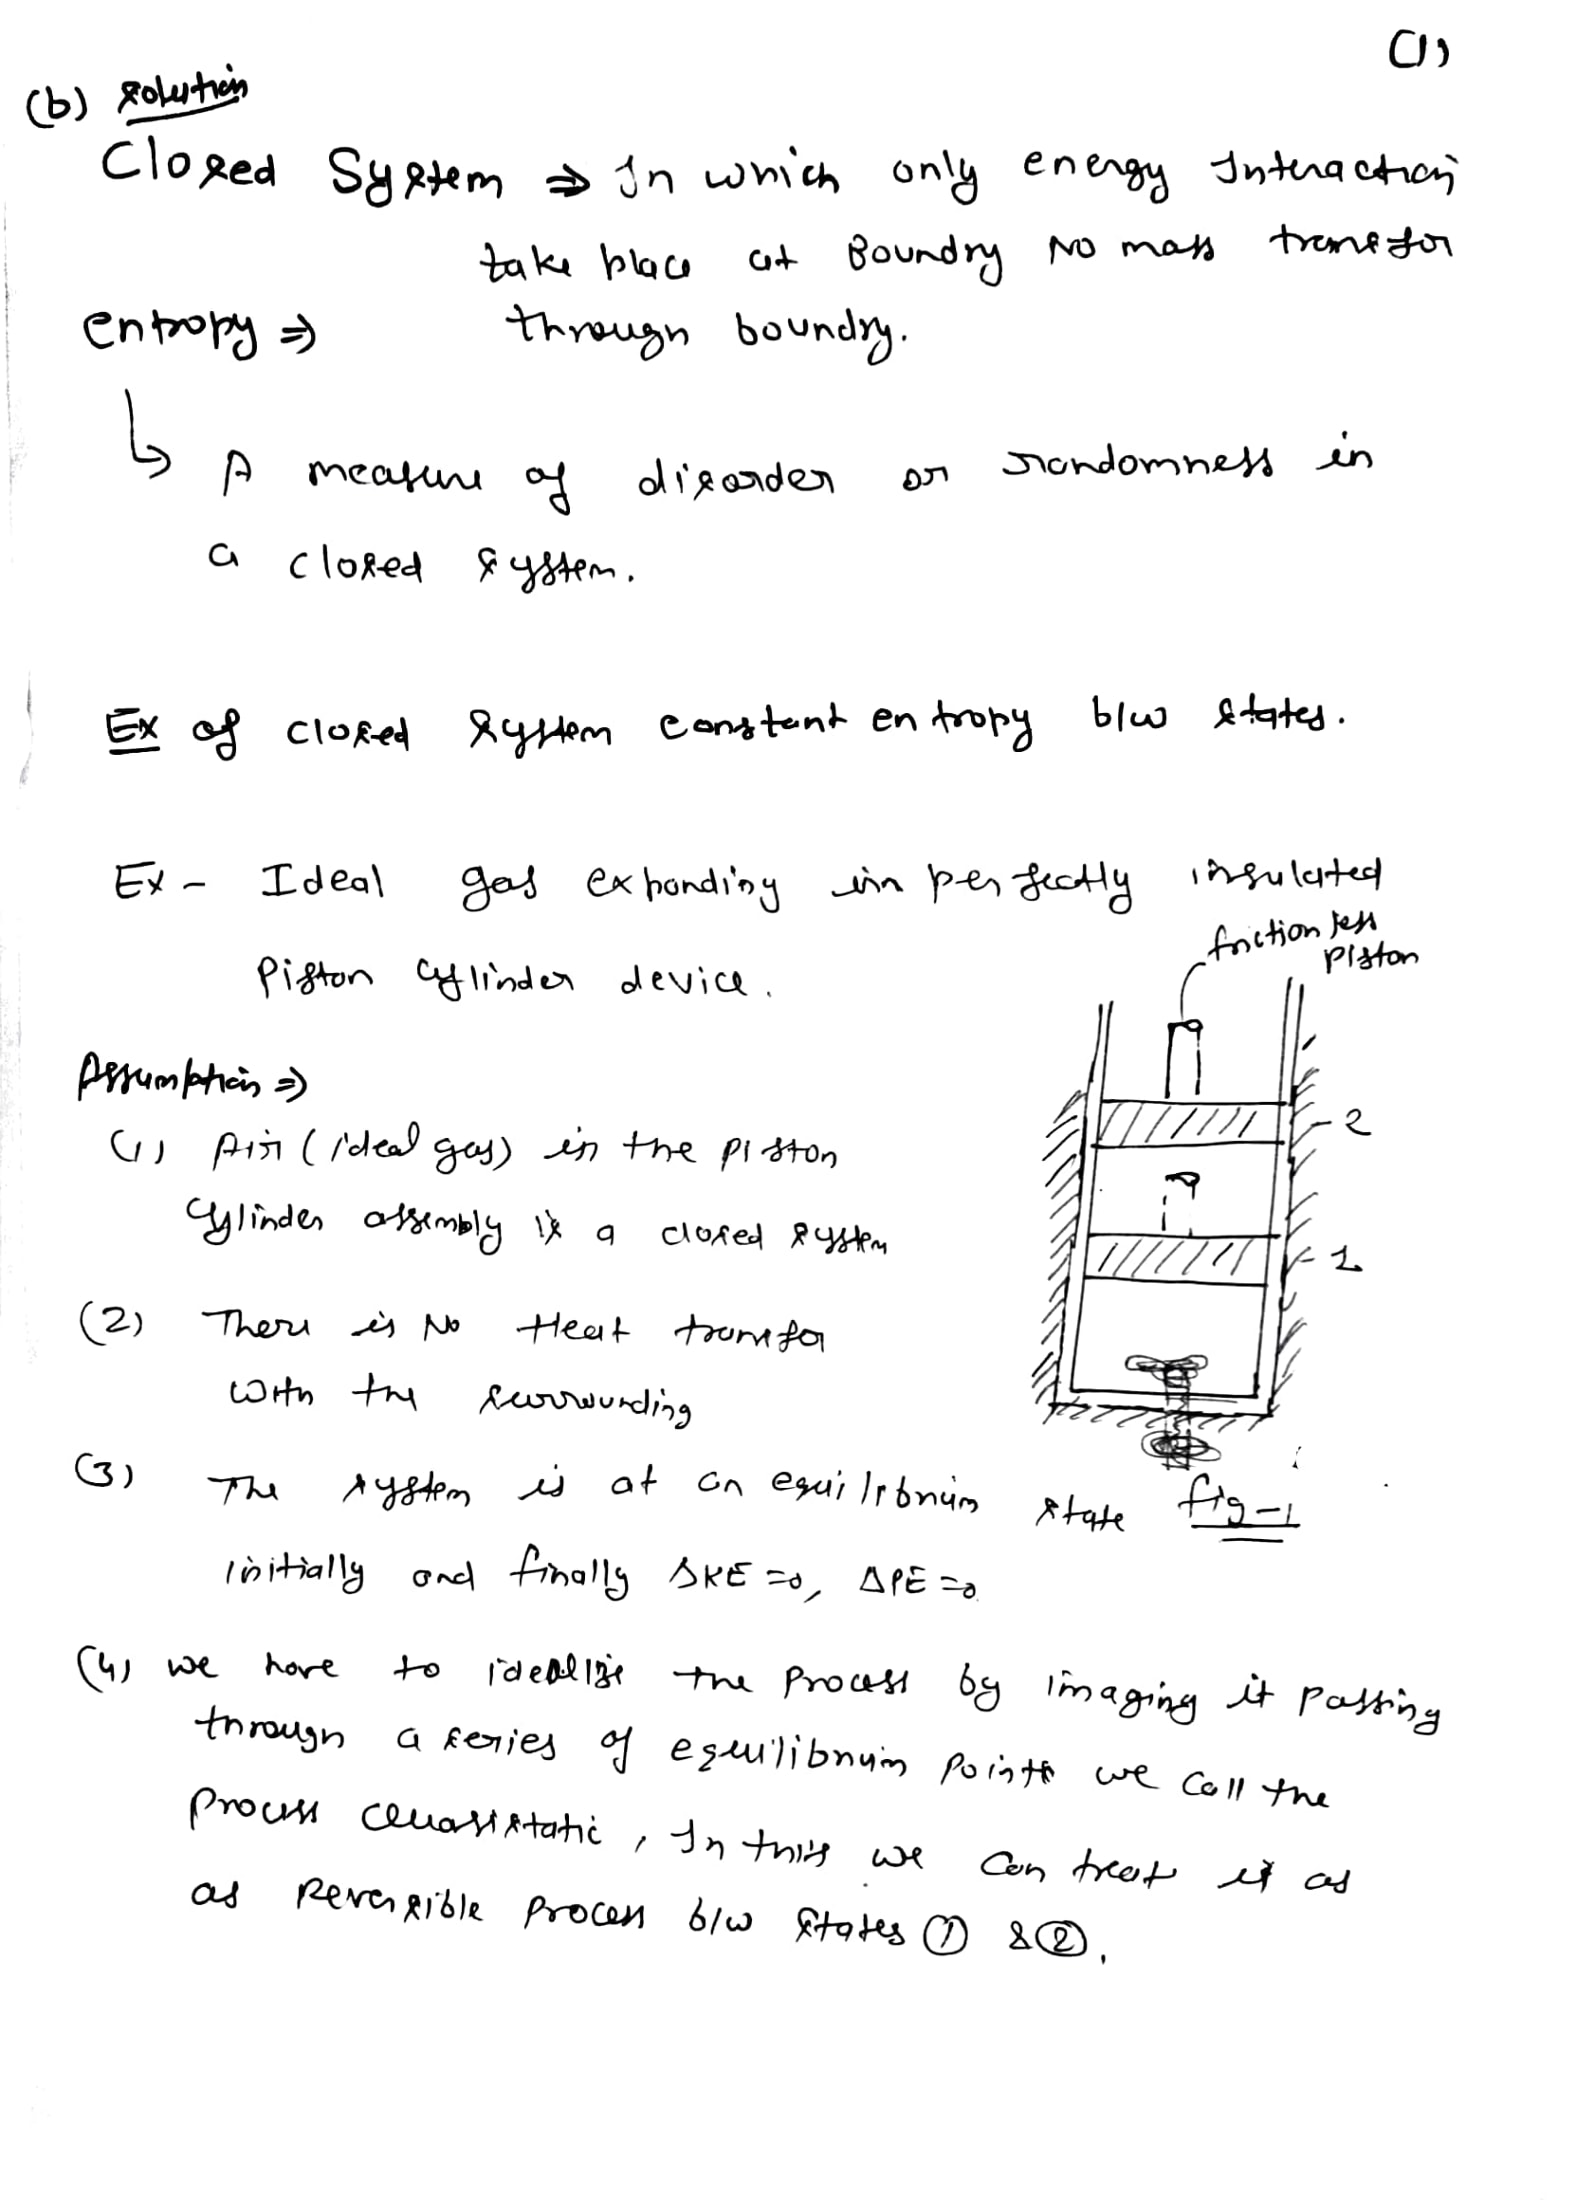 (1)
(b) solution
Closed System ⇒ In which only energy Interaction
take place at Boundry No mass transfer
through boundry.
entropy ⇒
↳ A measure of disorder or randomness in
a closed system.
Ex of closed system constant entropy b/w states.
Ex - Ideal gas expanding in perfectly insulated
Piston cylinder device.
frictionless
Piston
Assumption ⇒
(1) Air (ideal gas) in the piston
cylinder assembly is a closed system
2
1
(2) There is No Heat transfer
with the surrounding
(3) The system is at an equilibrium state
initially and finally ΔKE = 0, ΔPE = 0
fig-1
(4) we have to idealize the process by imaging it passing
through a series of equilibrium points we call the
process Quasistatic, In this we can treat it as
as Reversible Process b/w states ① & ②.